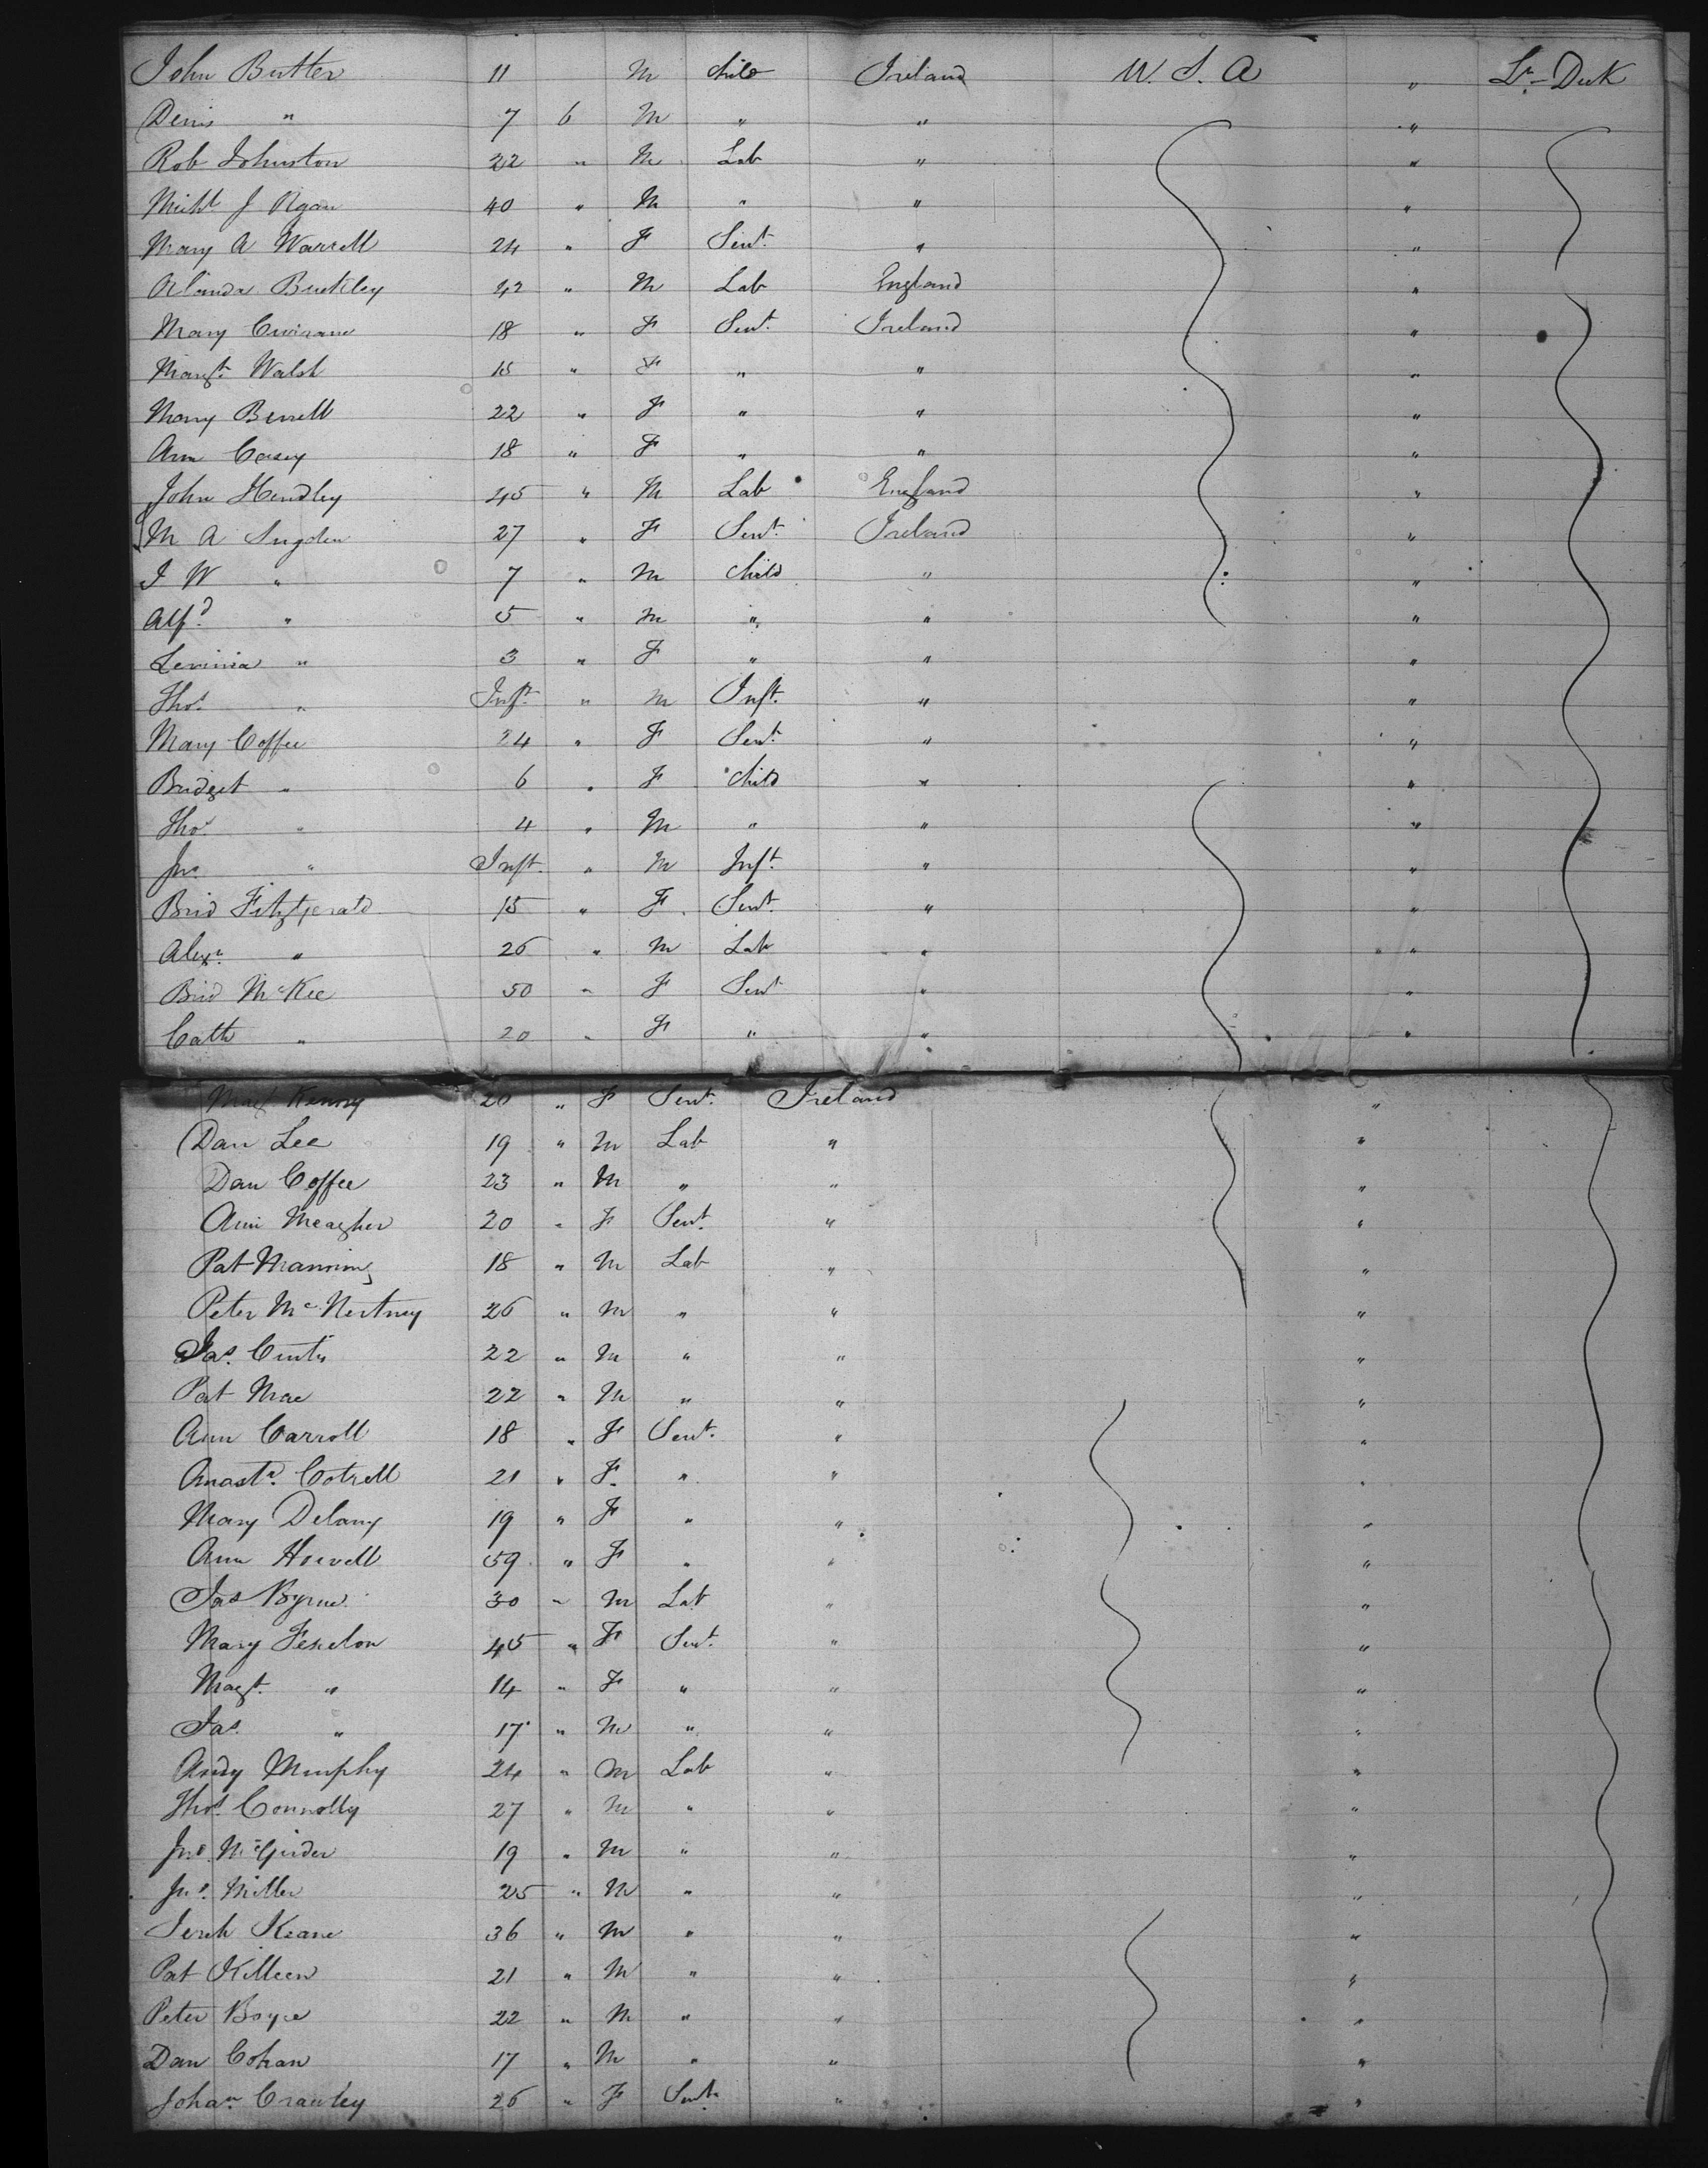 John Butler 11 M Child Ireland U. S. A " Lr Deck
Denis " 7 6 M " " "
Rob Johnston 22 " M Lab " "
Michl J Ryan 40 " M " " "
Mary A Warrell 24 " F Sevt. " "
42 " M Lab England "
Mary 18 " F Sevt. Ireland "
Margt. Walsh 18 " F " " "
Mary 22 " F " " "
Ann Casey 18 " F " " "
John Hendley 45 " M Lab England "
M A Sugden 27 " F Sevt. Ireland "
J W " 7 " M Child " "
Alfd. " 5 " M " " "
Levinia " 3 " F " " "
Thos. " Inft. " M Inft. " "
Mary Coffee 24 " F Sevt. " "
Bridget " 6 " F Child " "
Thos. " 4 " M " " "
Jno. " Inft. " M Inft. " "
Brid Fitzgerald 15 " F Sevt. " "
Alexr. " 26 " M Lab " "
Brid McKee 50 " F Sevt " "
Cath " 20 " F " " "
Kenny 20 " F Sevt. Ireland "
Dan Lee 19 " M Lab " "
Dan Coffee 23 " M " " "
Ann Meagher 20 " F Sevt. " "
Pat Manning 18 " M Lab " "
Peter McNertney 26 " M " " "
Jas. Curtis 22 " M " " "
Pat Mac 22 " M " " "
Ann Carroll 18 " F Sevt. " "
Anasta. Cotrell 21 " F " " "
Mary Delany 19 " F " " "
Ann Howell 59 " F " " "
Jas Byrne 30 " M Lab " "
Mary Fenelon 45 " F Sevt. " "
Magt. " 14 " F " " "
Jas. " 17 " M " " "
Andy Murphy 24 " M Lab " "
Thos. Connolly 27 " M " " "
Jno. McGirder 19 " M " " "
Jno. Miller 25 " M " " "
Jerh Keane 36 " M " " "
Pat Killeen 21 " M " " "
Peter Boyce 22 " M " " "
Dan Cohan 17 " M " " "
Johan. Crawley 26 " F Sevt. " "